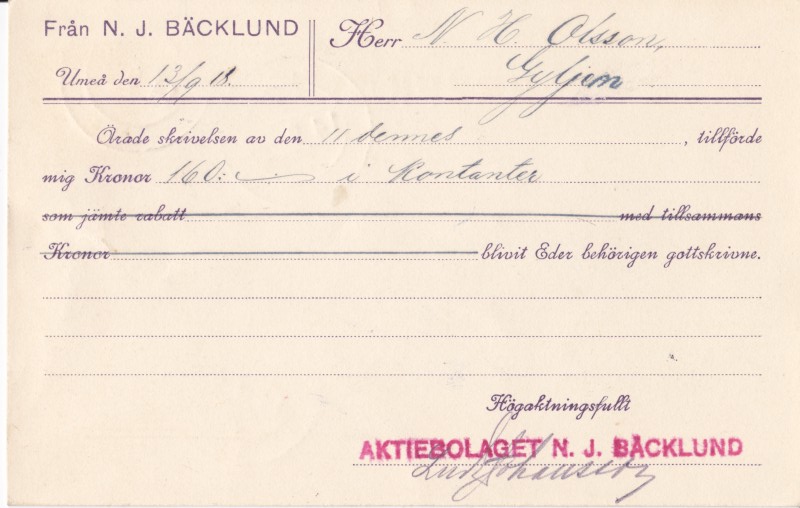 Från N. J. BÄCKLUND
Herr N. H. Olsson,
Gyljen
Umeå den 13/9 18.
Ärade skrivelsen av den 11 dennes, tillförde
mig Kronor 160:- i kontanter
som jämte rabatt med tillsammans
Kronor blivit Eder behörigen gottskrivne.
Högaktningsfullt
AKTIEBOLAGET N. J. BÄCKLUND
Johansson